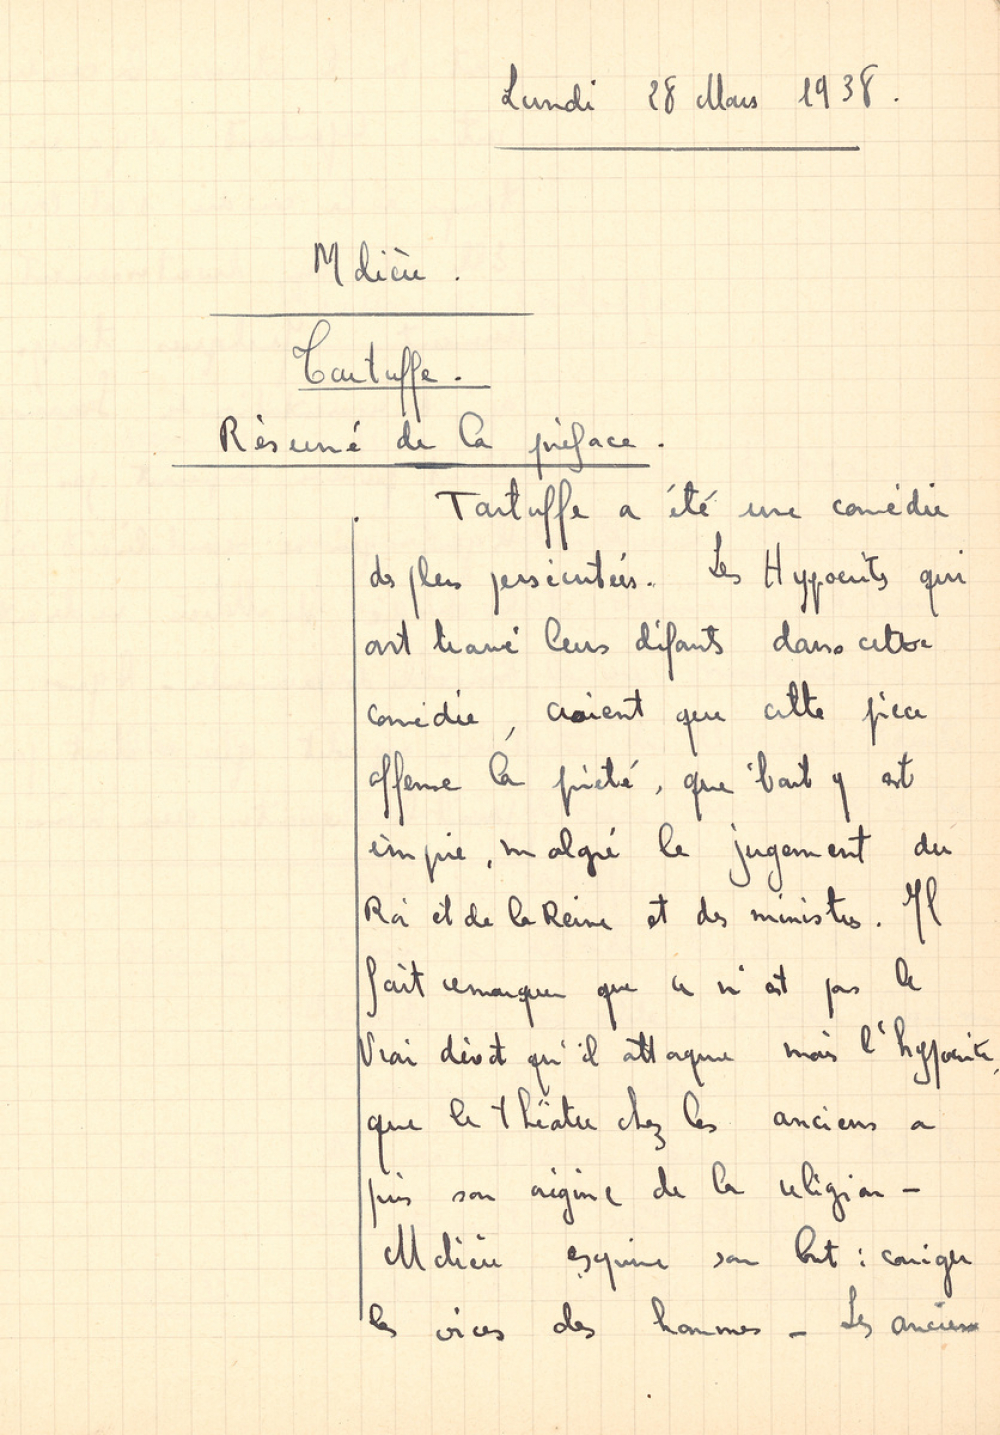 Lundi 28 Mars 1938.
Molière.
Tartuffe.
Résumé de la préface.
Tartuffe a été une comédie
des plus persécutées. Les Hypocrites qui
ont trouvé leurs défauts dans cette
comédie, croient que cette pièce
offense la piété, que tout y est
impie, malgré le jugement du
Roi et de la Reine et des ministres. Il
fait remarquer que ce n'est pas le
Vrai dévot qu'il attaque mais l'hypocrite,
que le théâtre chez les anciens a
pris son origine de la religion -
Molière exprime son but : corriger
les vices des hommes - Les anciens